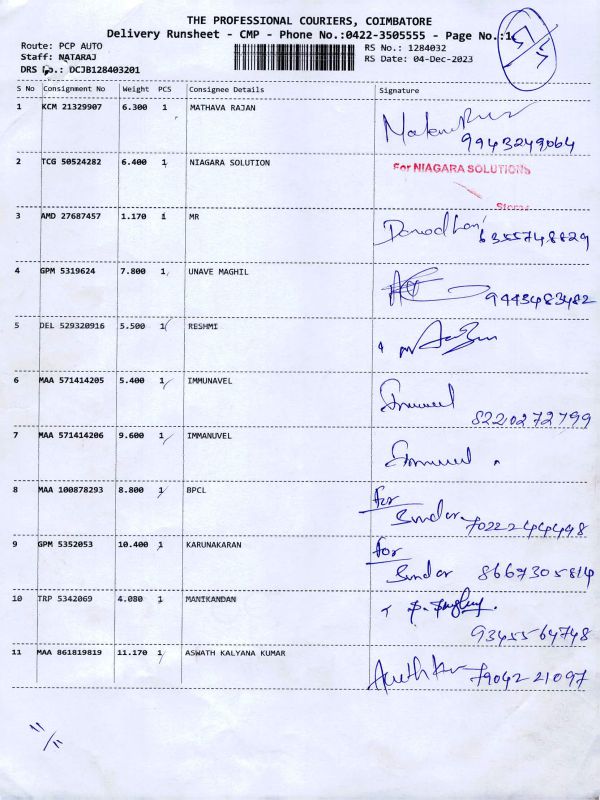 THE PROFESSIONAL COURIERS, COIMBATORE
Delivery Runsheet - CMP - Phone No.:0422-3505555 - Page No.:1
Route: PCP AUTO
RS No.: 1284032
Staff: NATARAJ
RS Date: 04-Dec-2023
DRS No.: DCJB128403201
S No Consignment No Weight PCS Consignee Details Signature
1 KCM 21329907 6.300 1 MATHAVA RAJAN
9943249064
2 TCG 50524282 6.400 1 NIAGARA SOLUTION For NIAGARA SOLUTIONS
Stores
3 AMD 27687457 1.170 1 MR
6355748829
4 GPM 5319624 7.800 1 UNAVE MAGHIL
9443483482
5 DEL 529320916 5.500 1 RESHMI
6 MAA 571414205 5.400 1 IMMUNAVEL
8220272799
7 MAA 571414206 9.600 1 IMMANUVEL
8 MAA 100878293 8.800 1 BPCL for
Sundar 7022244498
9 GPM 5352053 10.400 1 KARUNAKARAN for
Sundar 8667305814
10 TRP 5342069 4.080 1 MANIKANDAN
9345564748
11 MAA 861819819 11.170 1 ASWATH KALYANA KUMAR
7904221097
11/11